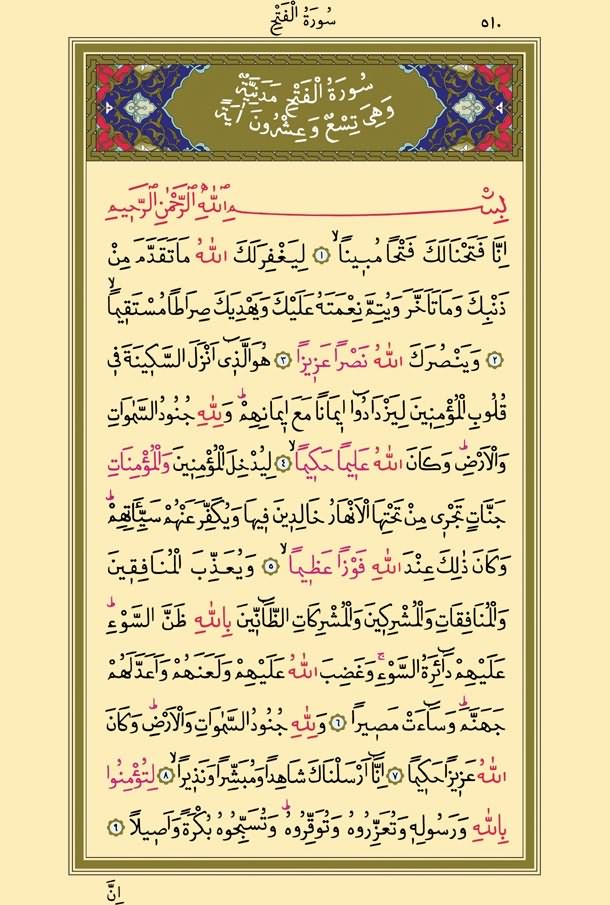 سُورَةُ الْفَتْحِ
٥١٠
سُورَةُ الْفَتْحِ مَدَنِيَّةٌ
وَهِيَ تِسْعٌ وَعِشْرُونَ اٰيَةً
بِسْمِ اللّٰهِ الرَّحْمٰنِ الرَّحٖيمِ
اِنَّا فَتَحْنَا لَكَ فَتْحًا مُبٖينًاۙ ﴿١﴾ لِيَغْفِرَ لَكَ اللّٰهُ مَا تَقَدَّمَ مِنْ
ذَنْبِكَ وَمَا تَاَخَّرَ وَيُتِمَّ نِعْمَتَهُ عَلَيْكَ وَيَهْدِيَكَ صِرَاطًا مُسْتَقٖيمًاۙ
﴿٢﴾ وَيَنْصُرَكَ اللّٰهُ نَصْرًا عَزٖيزًا ﴿٣﴾ هُوَ الَّذٖٓي اَنْزَلَ السَّكٖينَةَ فٖي
قُلُوبِ الْمُؤْمِنٖينَ لِيَزْدَادُٓوا اٖيمَانًا مَعَ اٖيمَانِهِمْؕ وَلِلّٰهِ جُنُودُ السَّمٰوَاتِ
وَالْاَرْضِؕ وَكَانَ اللّٰهُ عَلٖيمًا حَكٖيمًاۙ ﴿٤﴾ لِيُدْخِلَ الْمُؤْمِنٖينَ وَالْمُؤْمِنَاتِ
جَنَّاتٍ تَجْرٖي مِنْ تَحْتِهَا الْاَنْهَارُ خَالِدٖينَ فٖيهَا وَيُكَفِّرَ عَنْهُمْ سَيِّـَٔاتِهِمْؕ
وَكَانَ ذٰلِكَ عِنْدَ اللّٰهِ فَوْزًا عَظٖيمًاۙ ﴿٥﴾ وَيُعَذِّبَ الْمُنَافِقٖينَ
وَالْمُنَافِقَاتِ وَالْمُشْرِكٖينَ وَالْمُشْرِكَاتِ الظَّٓانّٖينَ بِاللّٰهِ ظَنَّ السَّوْءِؕ
عَلَيْهِمْ دَٓائِرَةُ السَّوْءِۚ وَغَضِبَ اللّٰهُ عَلَيْهِمْ وَلَعَنَهُمْ وَاَعَدَّ لَهُمْ
جَهَنَّمَؕ وَسَٓاءَتْ مَصٖيرًا ﴿٦﴾ وَلِلّٰهِ جُنُودُ السَّمٰوَاتِ وَالْاَرْضِؕ وَكَانَ
اللّٰهُ عَزٖيزًا حَكٖيمًا ﴿٧﴾ اِنَّٓا اَرْسَلْنَاكَ شَاهِدًا وَمُبَشِّرًا وَنَذٖيرًاۙ ﴿٨﴾ لِتُؤْمِنُوا
بِاللّٰهِ وَرَسُولِهٖ وَتُعَزِّرُوهُ وَتُوَقِّرُوهُؕ وَتُسَبِّحُوهُ بُكْرَةً وَاَصٖيلًا ﴿٩﴾
اِنَّ